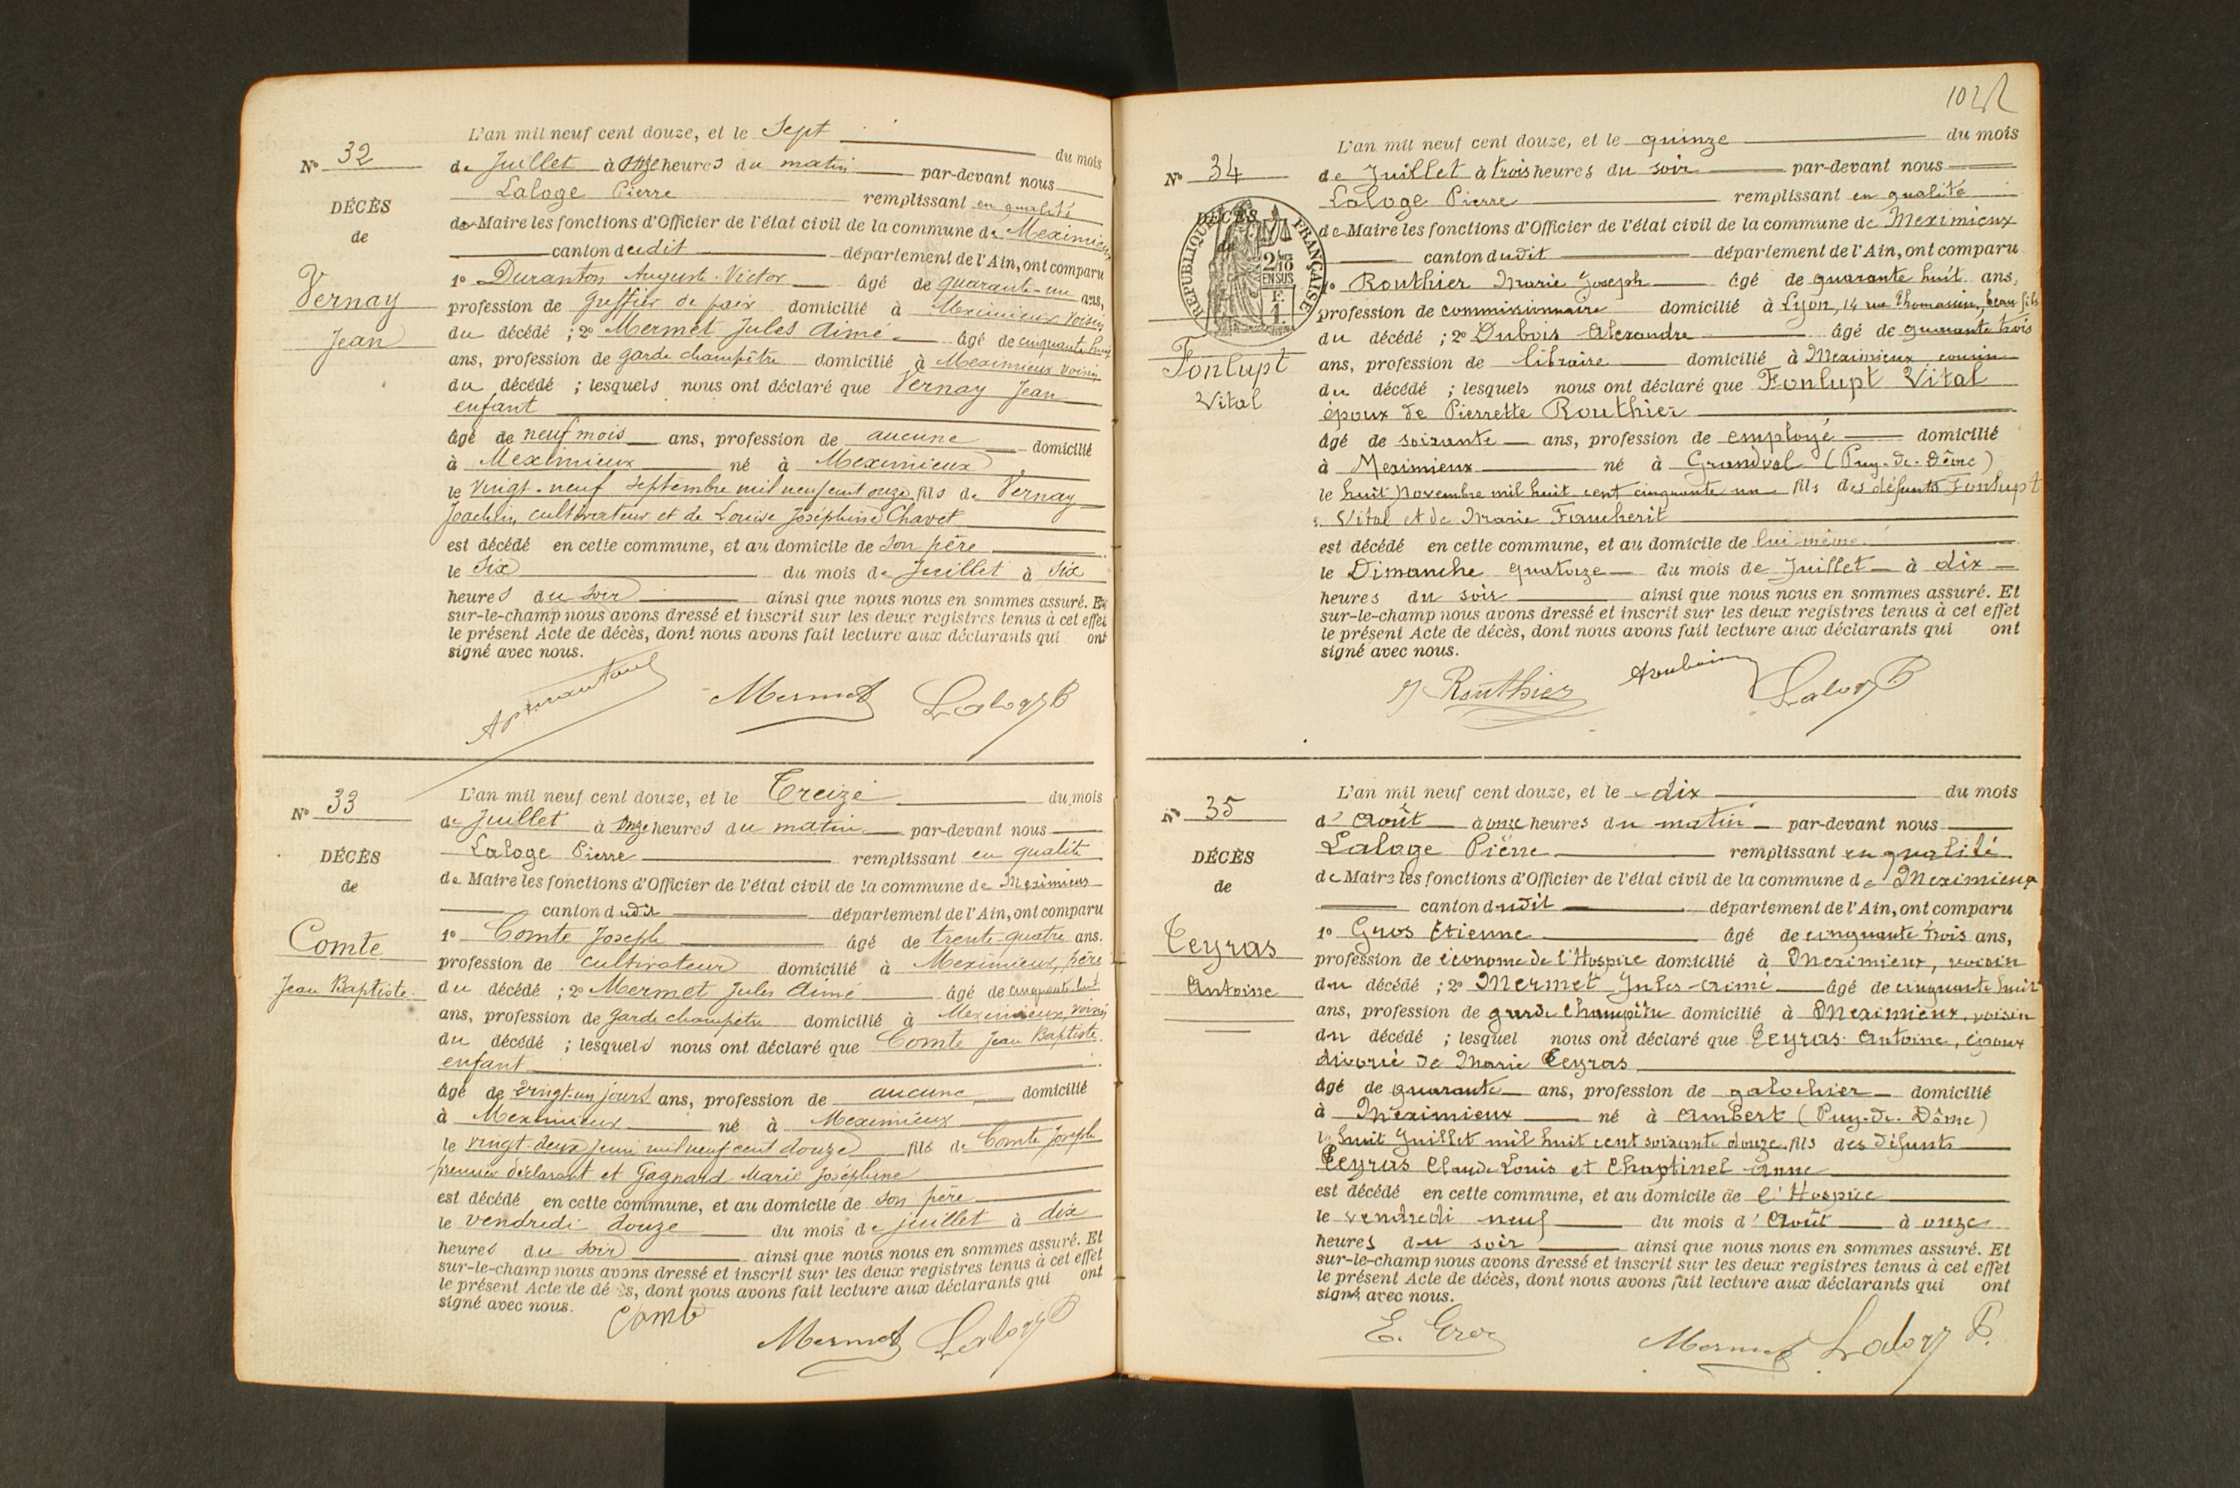 N° 32
DÉCÈS
de
Vernay
Jean
L'an mil neuf cent douze, et le Sept du mois
de Juillet à onze heures du matin par-devant nous
Laloge Pierre remplissant en qualité
de Maire les fonctions d'Officier de l'état civil de la commune de Meximieux
canton dudit département de l'Ain, ont comparu
1° Duranton Auguste Victor âgé de quarante-un ans,
profession de greffier de paix domicilié à Meximieux voisin
du décédé ; 2° Mermet Jules Aimé âgé de cinquante huit
ans, profession de garde champêtre domicilié à Meximieux voisin
du décédé ; lesquels nous ont déclaré que Vernay Jean
enfant
âgé de neuf mois ans, profession de aucune domicilié
à Meximieux né à Meximieux
le vingt-neuf septembre mil neuf cent onze fils de Vernay
Joachim cultivateur et de Louise Joséphine Chavet
est décédé en cette commune, et au domicile de son père
le six du mois de Juillet à six
heures du soir ainsi que nous nous en sommes assuré. Et
sur-le-champ nous avons dressé et inscrit sur les deux registres tenus à cet effet
le présent Acte de décès, dont nous avons fait lecture aux déclarants qui ont
signé avec nous.
Mermet Laloge P
N° 33
DÉCÈS
de
Comte
Jean Baptiste
L'an mil neuf cent douze, et le Treize du mois
de Juillet à onze heures du matin par-devant nous
Laloge Pierre remplissant en qualité
de Maire les fonctions d'Officier de l'état civil de la commune de Meximieux
canton dudit département de l'Ain, ont comparu
1° Comte Joseph âgé de trente-quatre ans.
profession de cultivateur domicilié à Meximieux, père
du décédé ; 2° Mermet Jules Aimé âgé de cinquante huit
ans, profession de garde champêtre domicilié à Meximieux, voisin
du décédé ; lesquels nous ont déclaré que Comte Jean Baptiste
enfant
âgé de vingt-un jours ans, profession de aucune domicilié
à Meximieux né à Meximieux
le vingt-deux juin mil neuf cent douze fils de Comte Joseph
premier déclarant et Gagnard Marie Joséphine
est décédé en cette commune, et au domicile de son père
le vendredi douze du mois de juillet à dix
heures du soir ainsi que nous nous en sommes assuré. Et
sur-le-champ nous avons dressé et inscrit sur les deux registres tenus à cet effet
le présent Acte de décès, dont nous avons fait lecture aux déclarants qui ont
signé avec nous.
Comte
Mermet Laloge P
102
N° 34
DÉCÈS
de
RÉPUBLIQUE FRANÇAISE
2/10 EN SUS
F. 1.
Fonlupt
Vital
L'an mil neuf cent douze, et le quinze du mois
de Juillet à trois heures du soir par-devant nous
Laloge Pierre remplissant en qualité
de Maire les fonctions d'Officier de l'état civil de la commune de Meximieux
canton dudit département de l'Ain, ont comparu
1° Routhier Marie Joseph âgé de quarante huit ans,
profession de commissionnaire domicilié à Lyon, 14 rue Thomassin, beau fils
du décédé ; 2° Dubois Alexandre âgé de quarante trois
ans, profession de libraire domicilié à Meximieux cousin
du décédé ; lesquels nous ont déclaré que Fonlupt Vital
époux de Pierrette Routhier
âgé de soixante ans, profession de employé domicilié
à Meximieux né à Grandval (Puy-de-Dôme)
le huit novembre mil huit cent cinquante un fils des défunts Fonlupt
Vital et de Marie Faucherit
est décédé en cette commune, et au domicile de lui même
le Dimanche quatorze du mois de Juillet à dix
heures du soir ainsi que nous nous en sommes assuré. Et
sur-le-champ nous avons dressé et inscrit sur les deux registres tenus à cet effet
le présent Acte de décès, dont nous avons fait lecture aux déclarants qui ont
signé avec nous.
J Routhier Laloge P
N° 35
DÉCÈS
de
Teyras
Antoine
L'an mil neuf cent douze, et le dix du mois
d'Août à onze heures du matin par-devant nous
Laloge Pierre remplissant en qualité
de Maire les fonctions d'Officier de l'état civil de la commune de Meximieux
canton dudit département de l'Ain, ont comparu
1° Gros Etienne âgé de cinquante trois ans,
profession de économe de l'Hospice domicilié à Meximieux, voisin
du décédé ; 2° Mermet Jules Aimé âgé de cinquante huit
ans, profession de garde champêtre domicilié à Meximieux, voisin
du décédé ; lesquel nous ont déclaré que Teyras Antoine, époux
divorcé de Marie Teyras
âgé de quarante ans, profession de galochier domicilié
à Meximieux né à Ambert (Puy-de-Dôme)
le huit Juillet mil huit cent soixante douze fils des défunts
Teyras Claude Louis et Chaptinel Anne
est décédé en cette commune, et au domicile de l'Hospice
le vendredi neuf du mois d'Août à onze
heures du soir ainsi que nous nous en sommes assuré. Et
sur-le-champ nous avons dressé et inscrit sur les deux registres tenus à cet effet
le présent Acte de décès, dont nous avons fait lecture aux déclarants qui ont
signé avec nous.
E. Gros Mermet Laloge P.